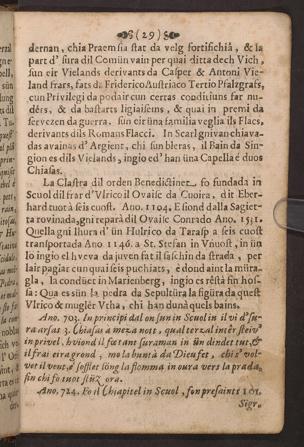 (29)
dernan, chia Praemsia stat da velg fortifichià, & la
part d' sura dil Comün vain per quai ditta dech Vich,
sun eir Vielands derivants da Casper & Antoni Vie-
land frars, fats da Friderico Austriaco Tertio Pfalzgrafs,
cun Privilegi da podair cun certas conditiuns far nu-
dérs, & da bastarts ligiaisens, & quai in premi da
servezen da guerra. sun eir üna familia veglia ils Flacs,
derivants dils Romans Flacci. In Scarl gnivan chiava-
das avainas d' Argient, chi sun bleras, il Bain da Sin-
gion es dils Vielands, ingio ed' han üna Capella è duos
Chiasas.
La Clastra dil orden Benedictiner fo fundada in
Scuol dil frar d' Ulrico il Ovaisc da Cuoira, dit Eber-
hard nuot à seis cuost Ano. 1104. E siond dalla Sagiet-
ta rovinada, gni reparà dil Ovaisc Conrado Ano. 1531.
Quella gni lhura d' ün Hulrico da Tarasp a seis cuost
transportada Ano 1146. a St. Stefan in Vnuost, in ün
lö ingio el h veva da juven fat il saschin da strada, per
lair pagiar cun quai seis puchiats, è dond aint la müra-
glia, la condüet in Marienberg, ingio es resta fin hos-
sa: Qua es sün la pedra da Sepultüra la figüra da quest
Ulrico & muglèr Vtha, chi han dunà quels bains.
Ano. 703. In principi dal on sun in Scuol in il vi d' su-
ra arsas 3. Chiasas a meza nott, qual terzal intèr steiv'
in privel, hviond il fö tant suraman in ün dindet tut, &
il frai eira grond, mo la buntà da Dieu fet, chi s' vol-
vet il veut, è sofflet söng la flomma in oura vers la prada
fin chi fo tuot stüz ora.
Ano. 724. Fo il Chiapitel in Scuol, son presaints 101.
Sigr.